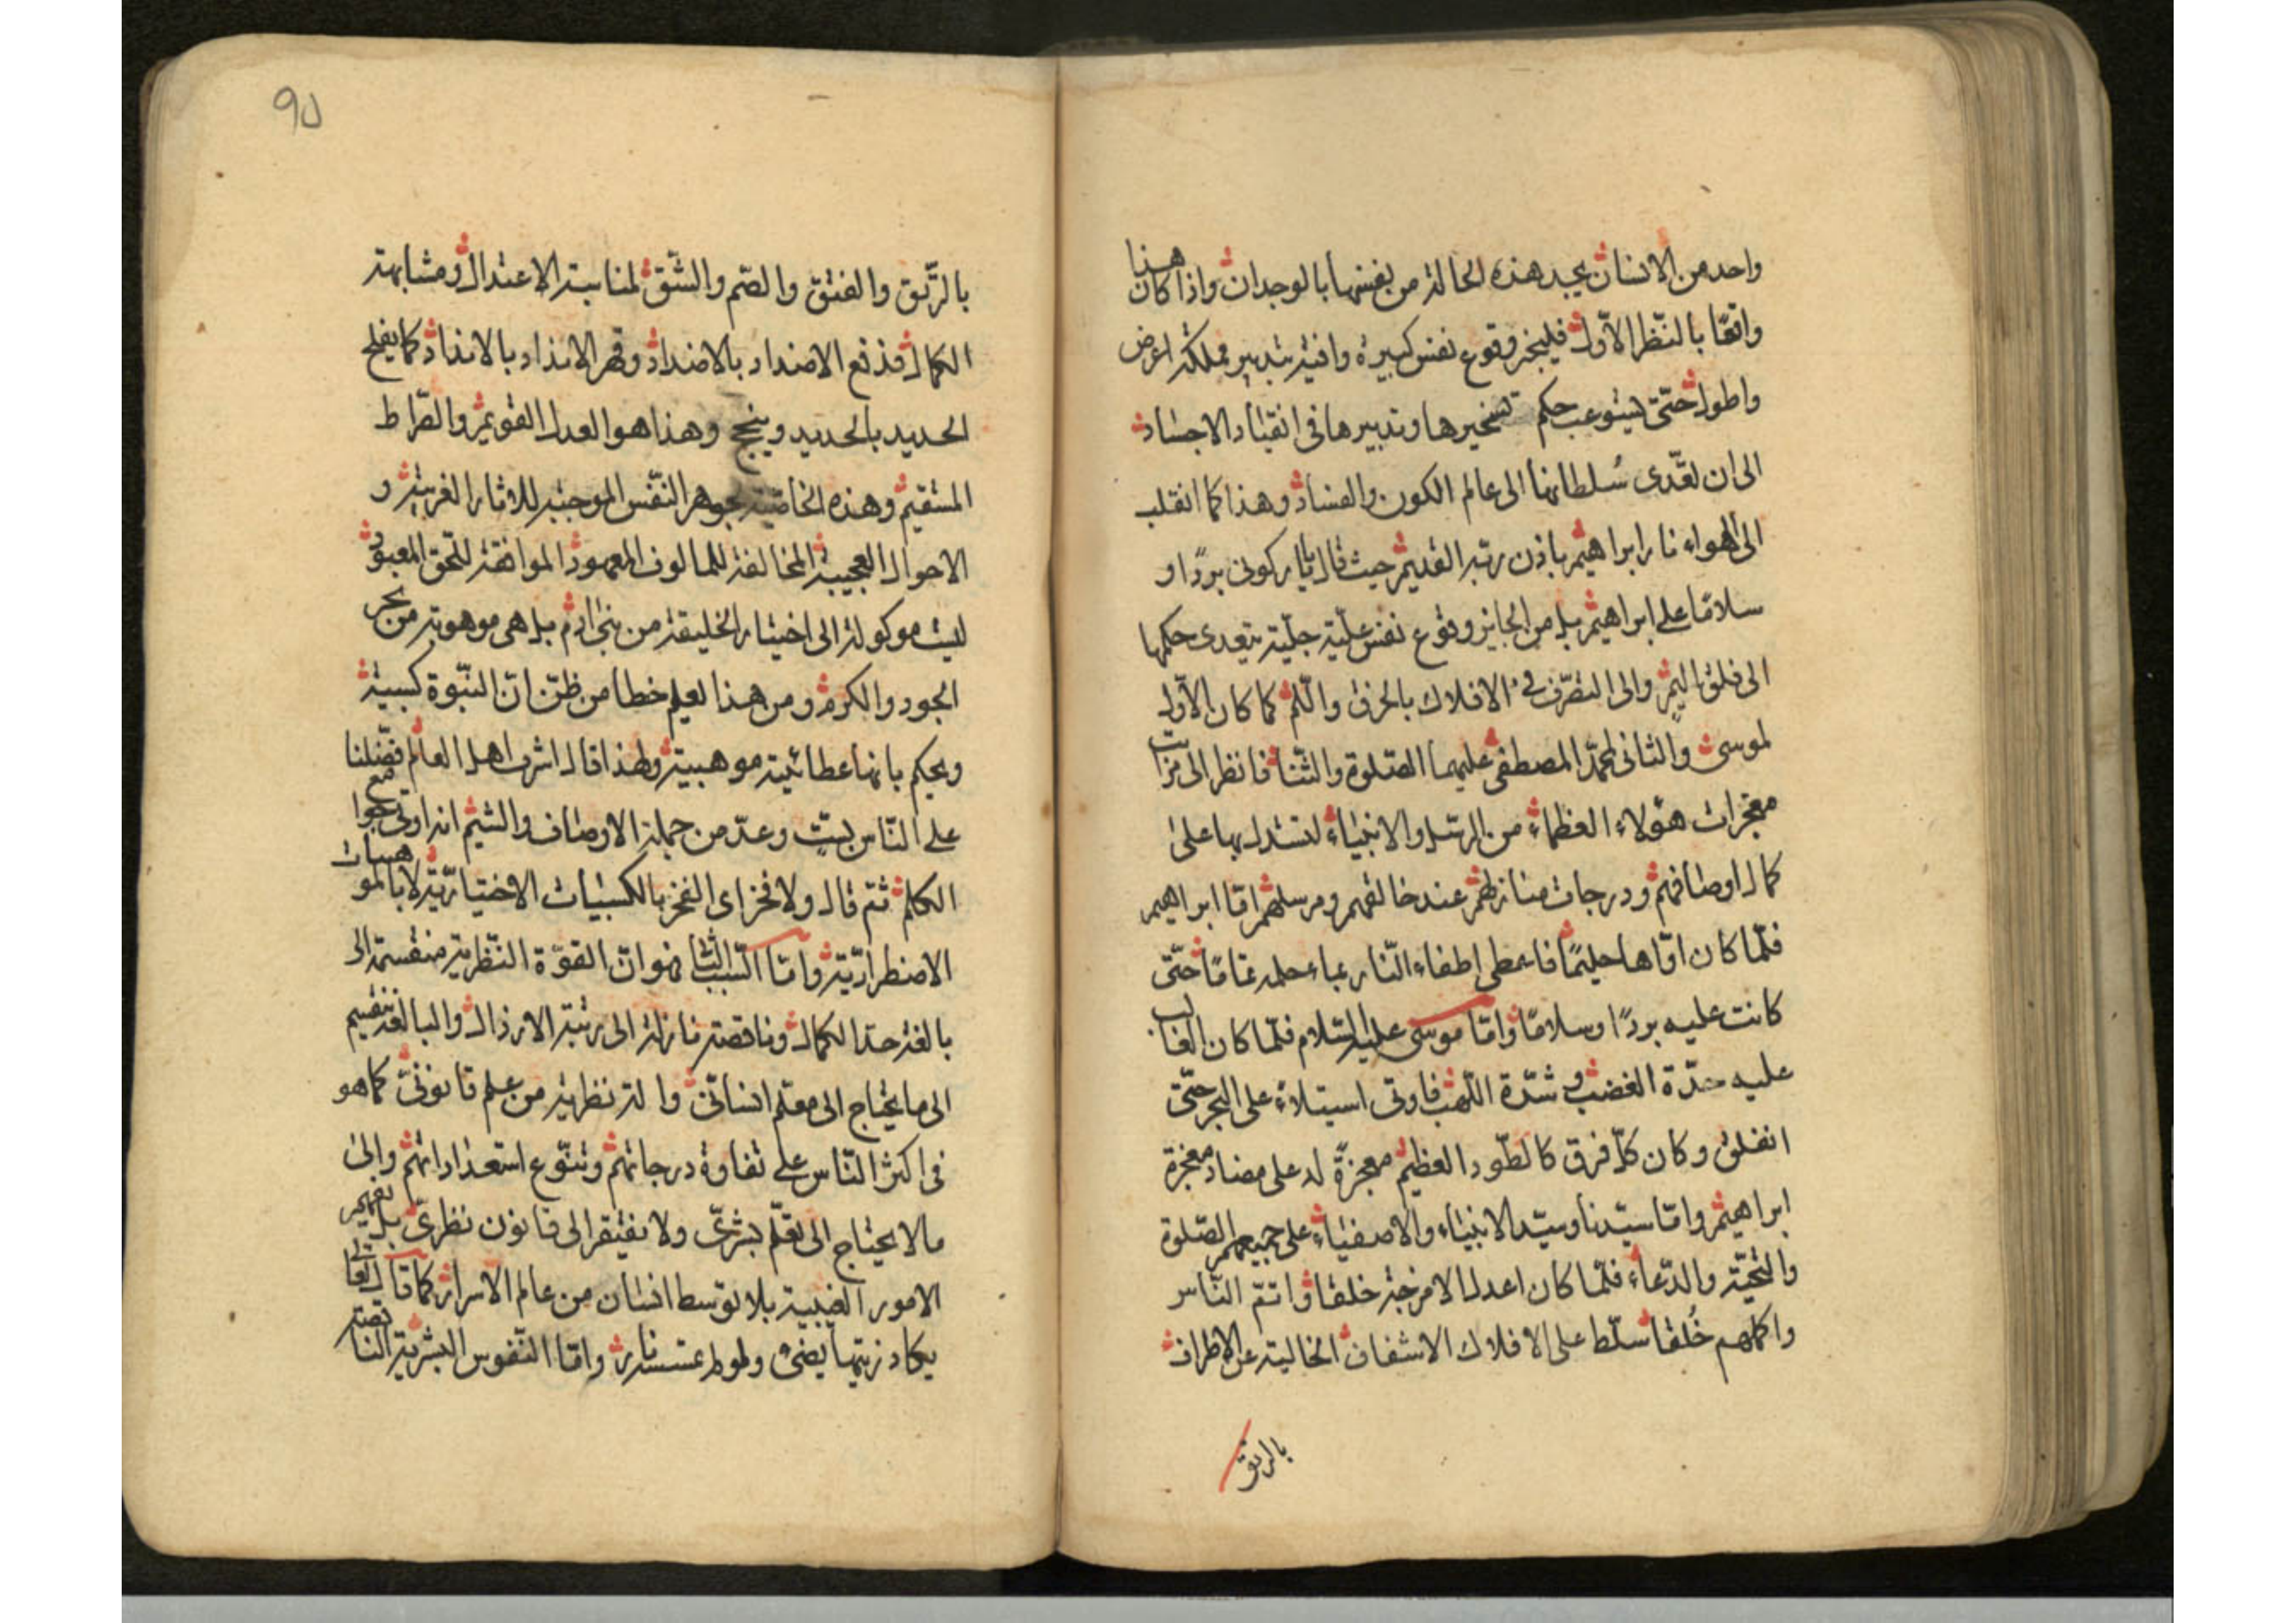 واحد من الانسان يجد هذه الحالة من نفسها بالوجدان واذا كان هذا
واقعًا بالنّظر الاوّل فليجز وقوع نفس كبيرة وافية بتدبير مملكة اعرض
واطول حتّى يستوعب حكم تسخيرها وتدبيرها فى انقياد الاجساد
الى ان تعدّى سُلطانها الى عالم الكون والفساد وهذا كما انقلب
الى الهواء نار ابراهيم باذن ربّه القديم حيث قال يا نار كونى بردًا و
سلامًا على ابراهيم بل من الجايز وقوع نفس عليّة جليّة يتعدى حكمها
الى فلق اليمّ والى التصرّف فى الافلاك بالخرق والّلم كما كان الاوّل
لموسى والثانى لمحمّد المصطفى عليهما الصّلوة والثنا فانظر الى مزات
معجزات هؤلاء العظماء من الرسل والانبياء لتستدل بها على
كمال اوصافهم ودرجات منازلهم عند خالقهم ومرسلهم امّا ابراهيم
فلمّا كان اوّاها حليمًا فاعطى اطفاء النّار بماء حلمه تمامًا حتّى
كانت عليه بردًا وسلامًا وامّا موسى عليه السّلام فلمّا كان الغالب
عليه حدّة الغضب وشدّة اللّهب فاوتى استيلاء على البحر حتّى
انفلق وكان كلّ فرق كالطّود العظيم معجزةً له على مضاد معجزة
ابراهيم وامّا سيّدنا وسيّد الانبياء والاصفياء على جميعهم الصّلوة
والتحيّة والدّعاء فلمّا كان اعدل الامزجة خلقا واتمّ النّاس
واكملهم خُلقا سلّط على الافلاك الاشفاف الخالية عن الاطراف
بالرتق
٩٥
بالرّتق والفتق والضّم والشّق لمناسبة الاعتدال ومشابهة
الكمال فدفع الاضداد بالاضداد وقهر الانداد بالانداد كما يفلح
الحديد بالحديد وينجح وهذا هو العدل القويم والصّراط
المستقيم وهذه الخاصّية لجوهر النّفس الموجبة للاثار الغريبة و
الاحوال العجيبة المخالفة للمالوف المعهود الموافقة للحق المعبود
ليست موكولة الى اختيار الخليقة من بنى ادم بل هى موهوبة من بحر
الجود والكرم ومن هذا يعلم خطا من ظنّ انّ النبّوة كسبية
ويحكم بانها عطائية موهبية ولهذا قال اشرف اهل العالم فضّلنا
على النّاس بستّ وعدّ من جملة الاوصاف والشيم انه اوتى جوامع
الكلم ثمّ قال ولا فخر اى الفخر بالكسبيات الاختياريّة لا بالموهبات
الاضطراريّة وامّا السّبب الثانى فهو انّ القوّة النّظرية منقسمة الى
بالغة حدّ الكمال وناقصة نازلة الى رتبة الارذال والبالغة تنقسم
الى ما يحتاج الى معلّم انسانّى والة نظرية من علم قانونىّ كما هو
فى اكثر النّاس على تفاوة درجاتهم وتنوّع استعداداتهم والى
ما لا يحتاج الى تعلّم بشرىّ ولا يفتقر الى قانون نظرىّ بل يفهم
الامور الغيبية بلا توسط انسان من عالم الاسرار كما قال تعالى
يكاد زيتها يضىء ولو لم تمسسه نار وامّا النّفوس البشرية الناقصة